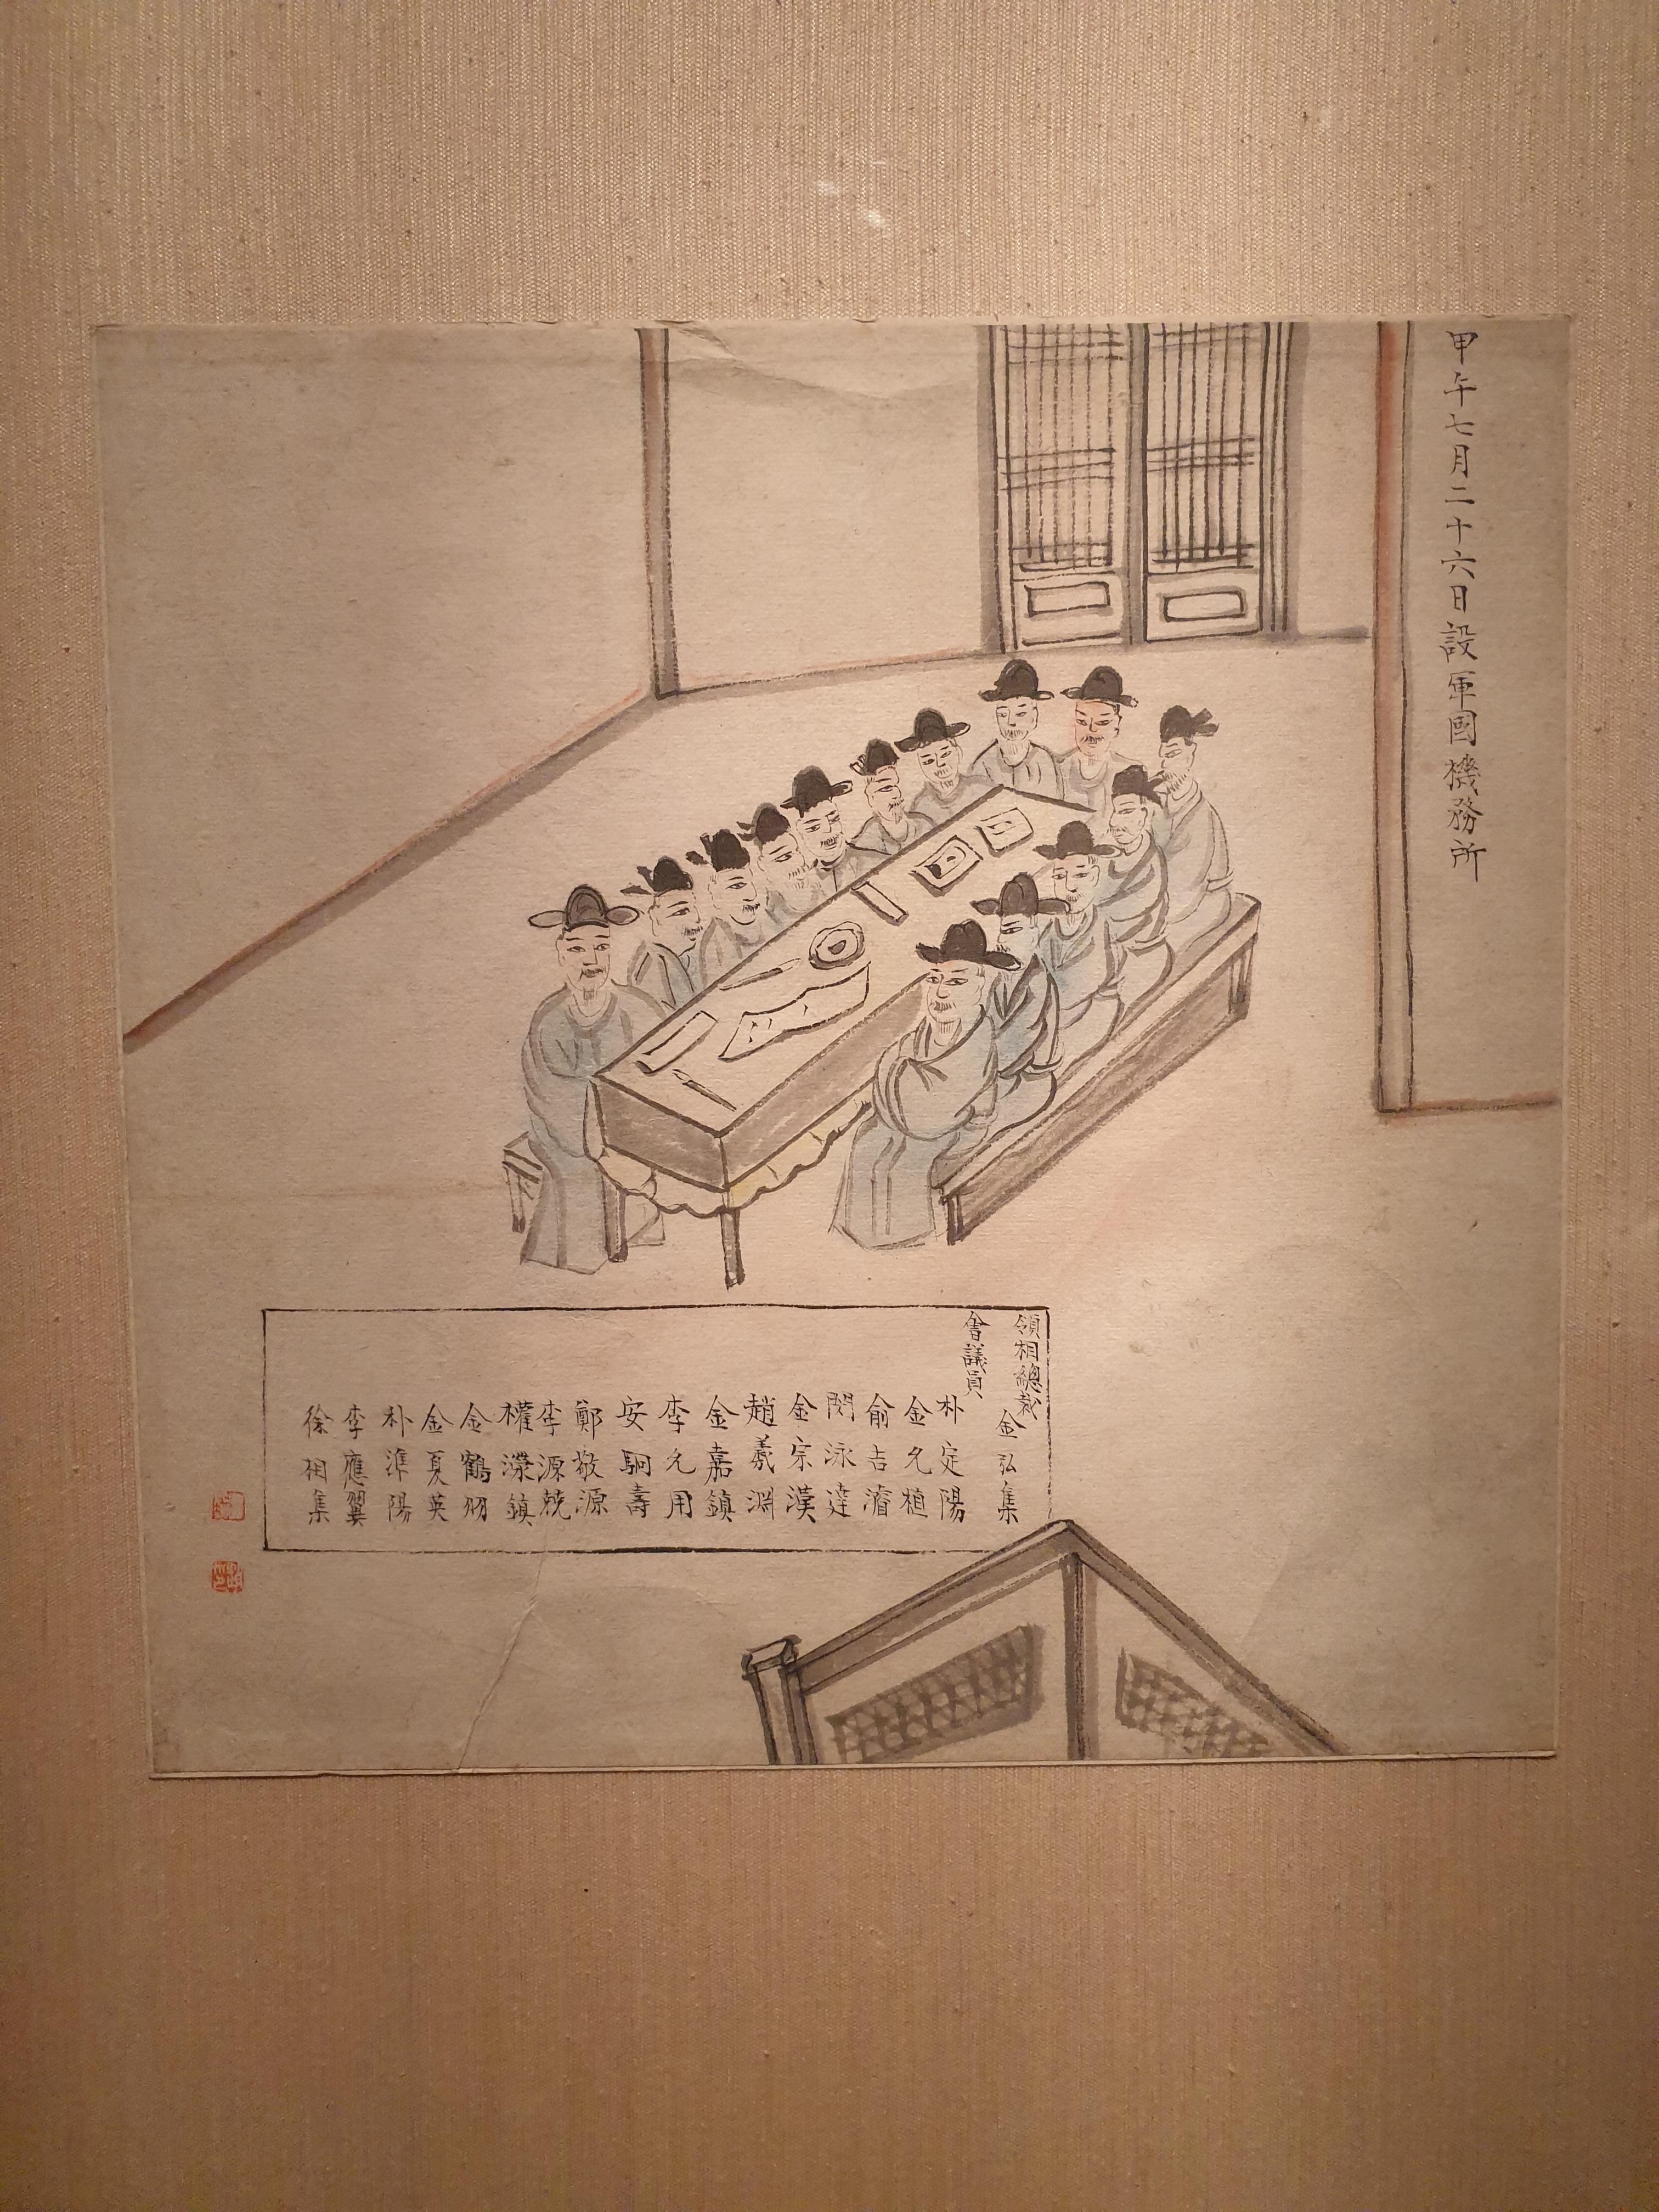 甲午七月二十六日設軍國機務所
領相總裁
金弘集
會議員
朴定陽
金允植
俞吉濬
閔泳達
金宗漢
趙羲淵
金嘉鎮
李允用
安駉壽
鄭敬源
李源兢
權瀅鎮
金鶴羽
金夏英
朴準陽
李應翼
徐相集